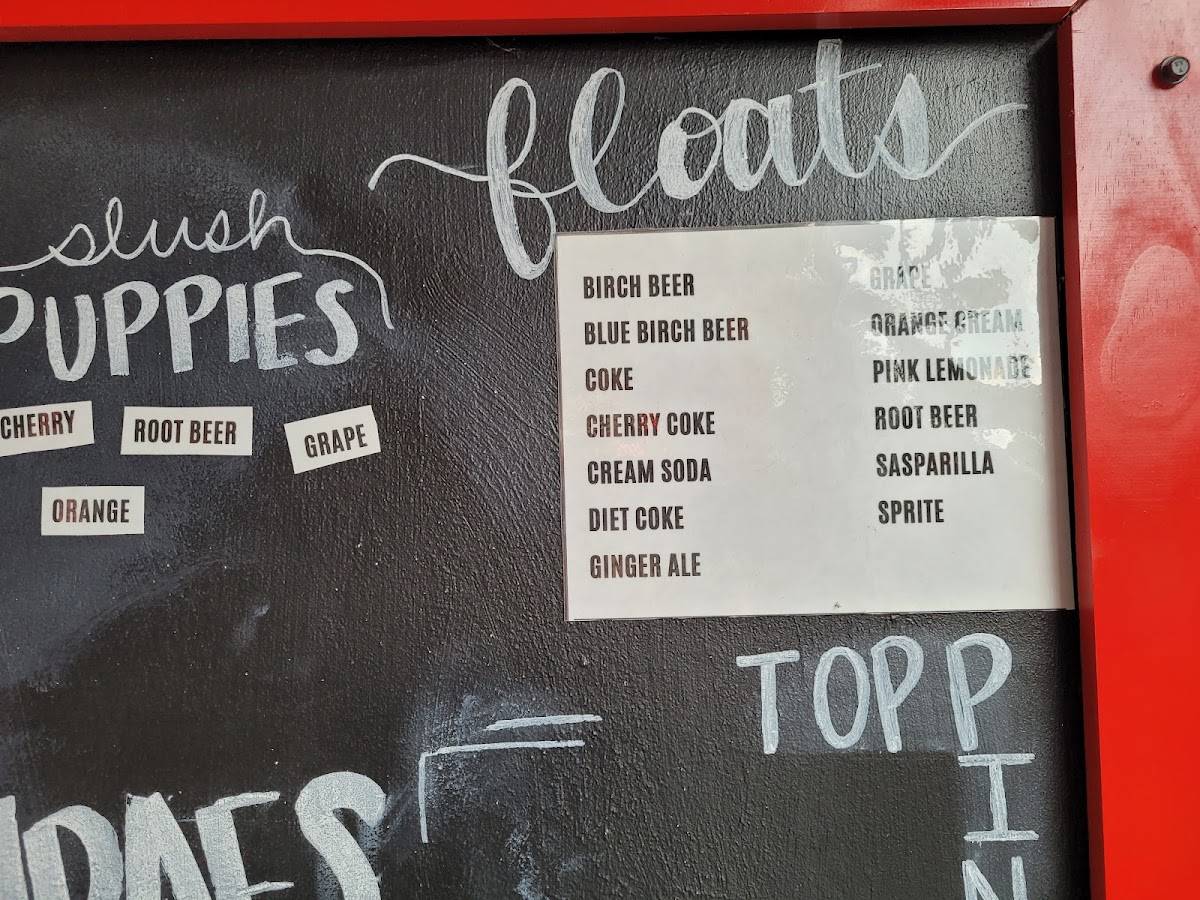 floats
slush
PUPPIES
CHERRY
ROOT BEER
GRAPE
ORANGE
BIRCH BEER
BLUE BIRCH BEER
COKE
CHERRY COKE
CREAM SODA
DIET COKE
GINGER ALE
GRAPE
ORANGE CREAM
PINK LEMONADE
ROOT BEER
SASPARILLA
SPRITE
TOPP
I
N